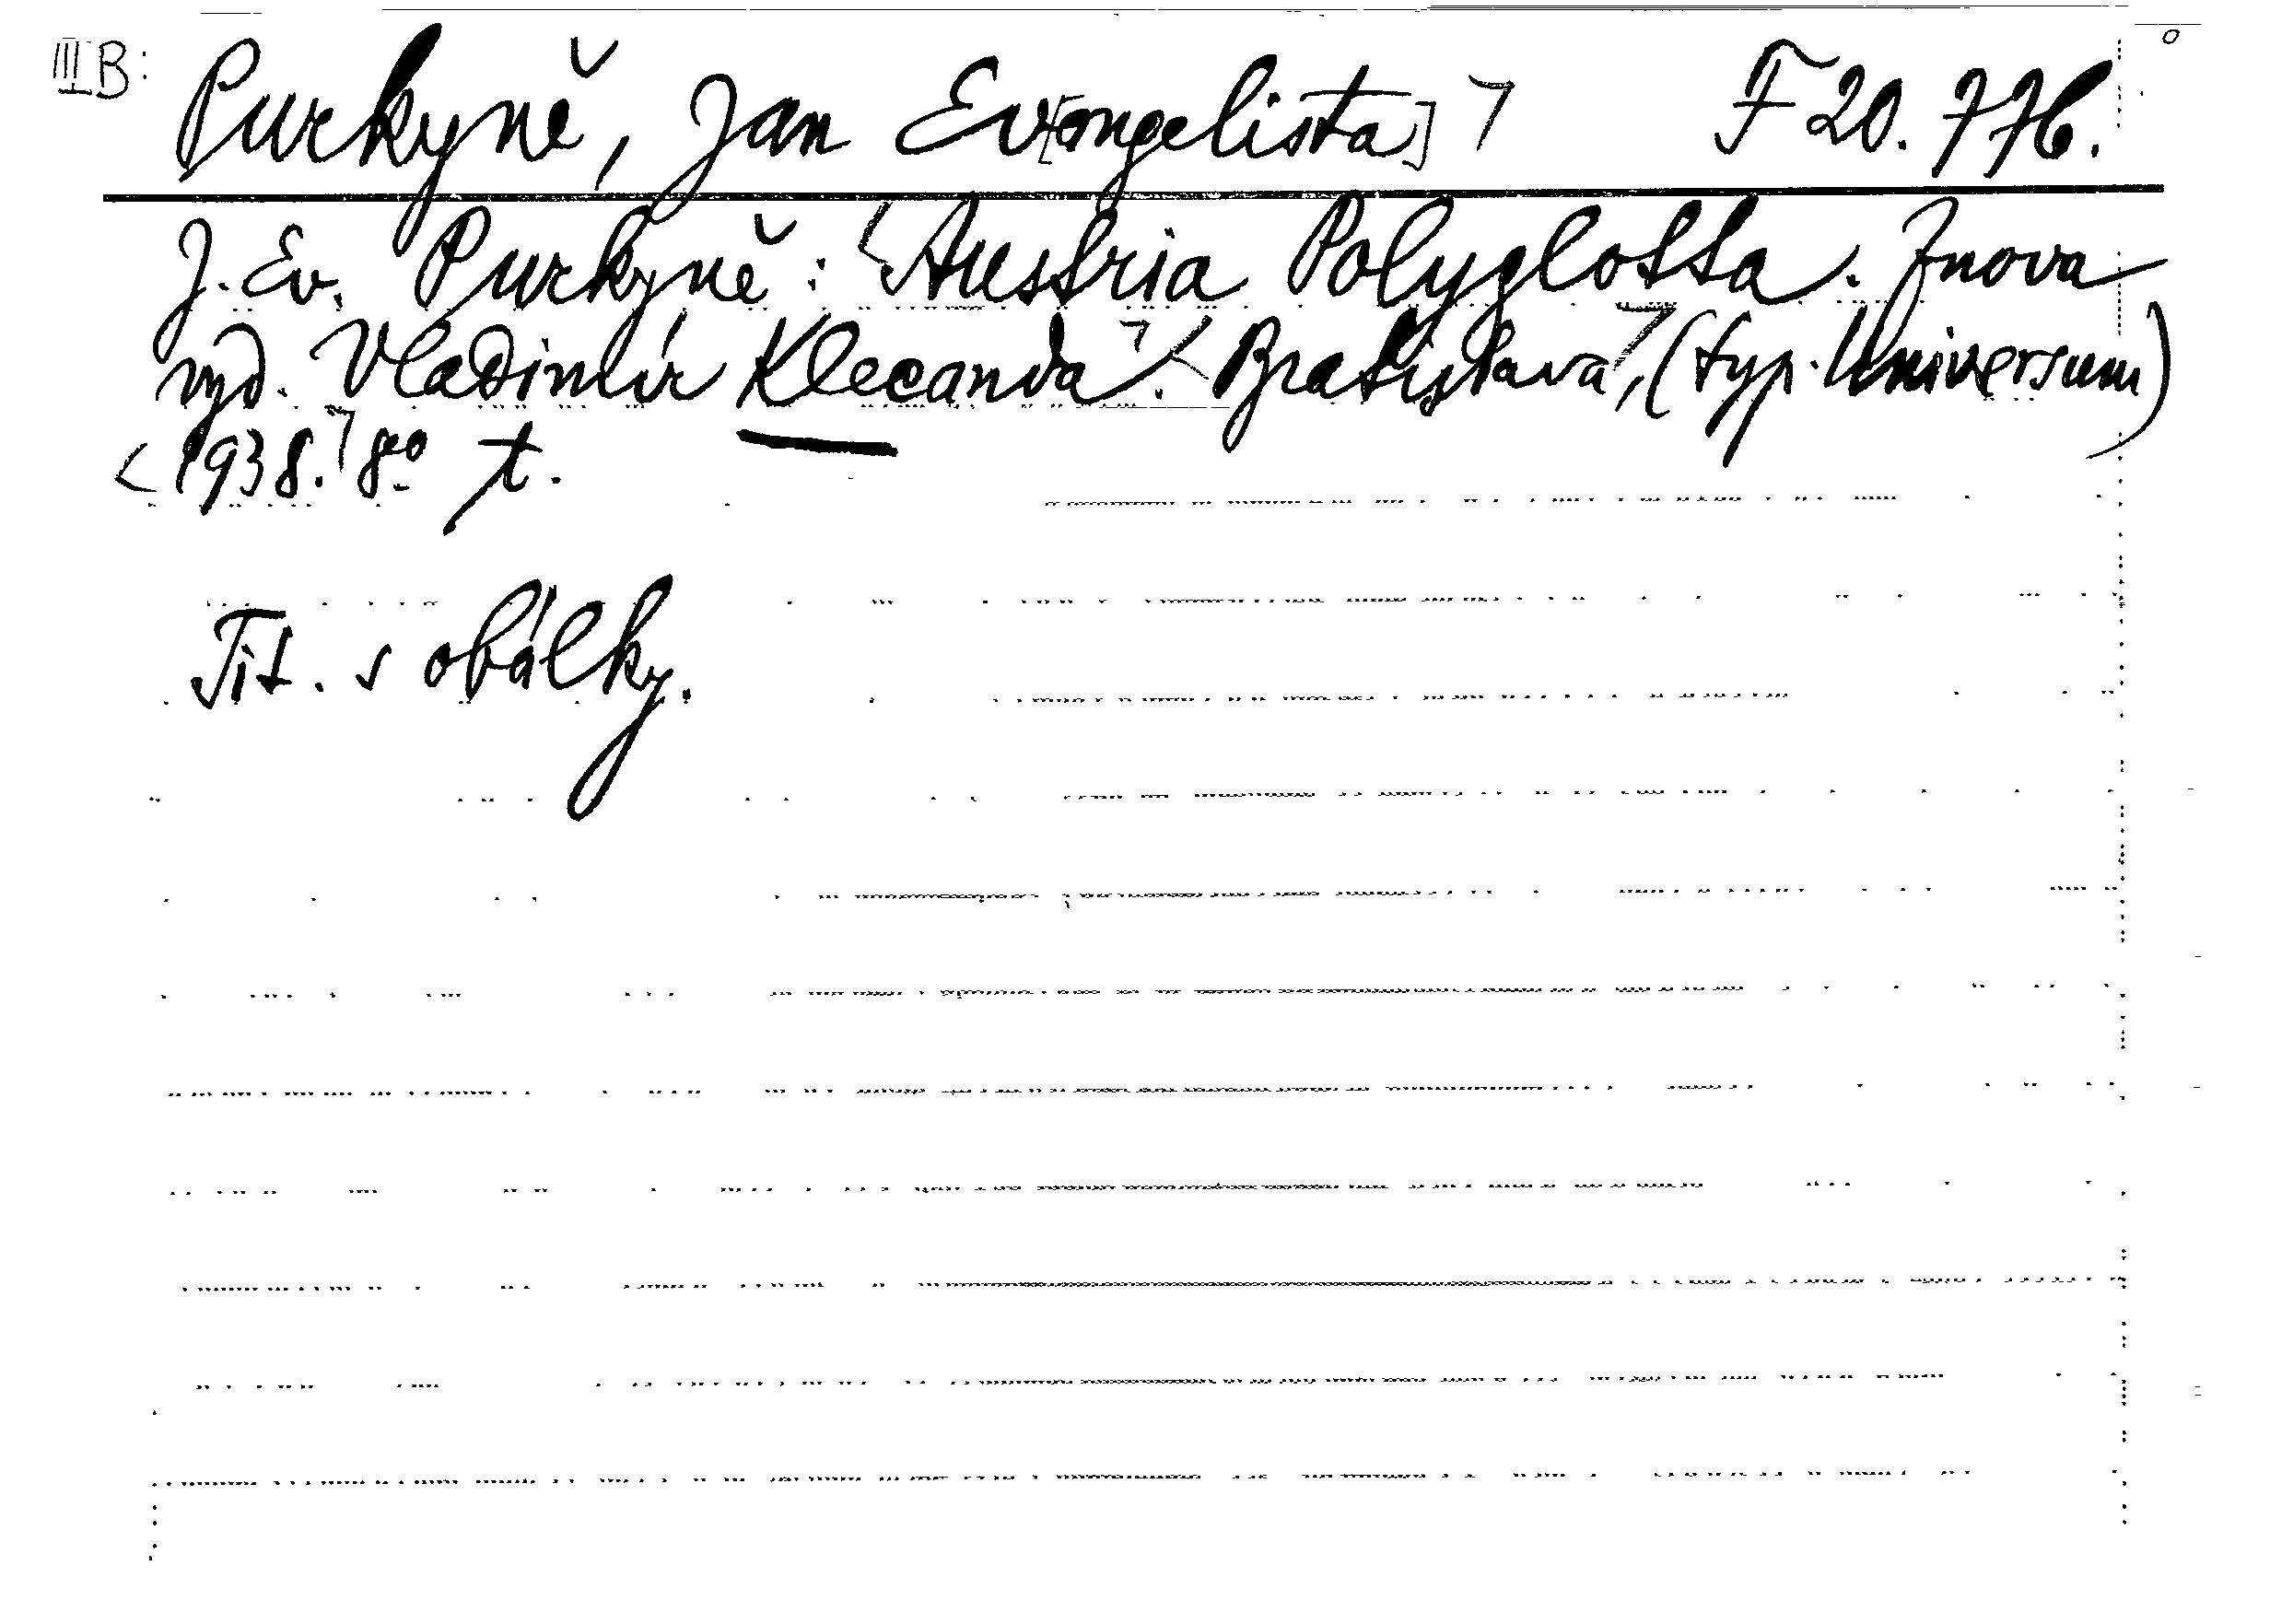 III B: Purkyně, Jan Ev[angelista] F 20.776.
J. Ev. Purkyně: Austria Polyglotta. Znova
vyd. Vladimír Klecanda. Bratislava, (typ. Universum)
1938. 8° t.
Tit. s obálky.